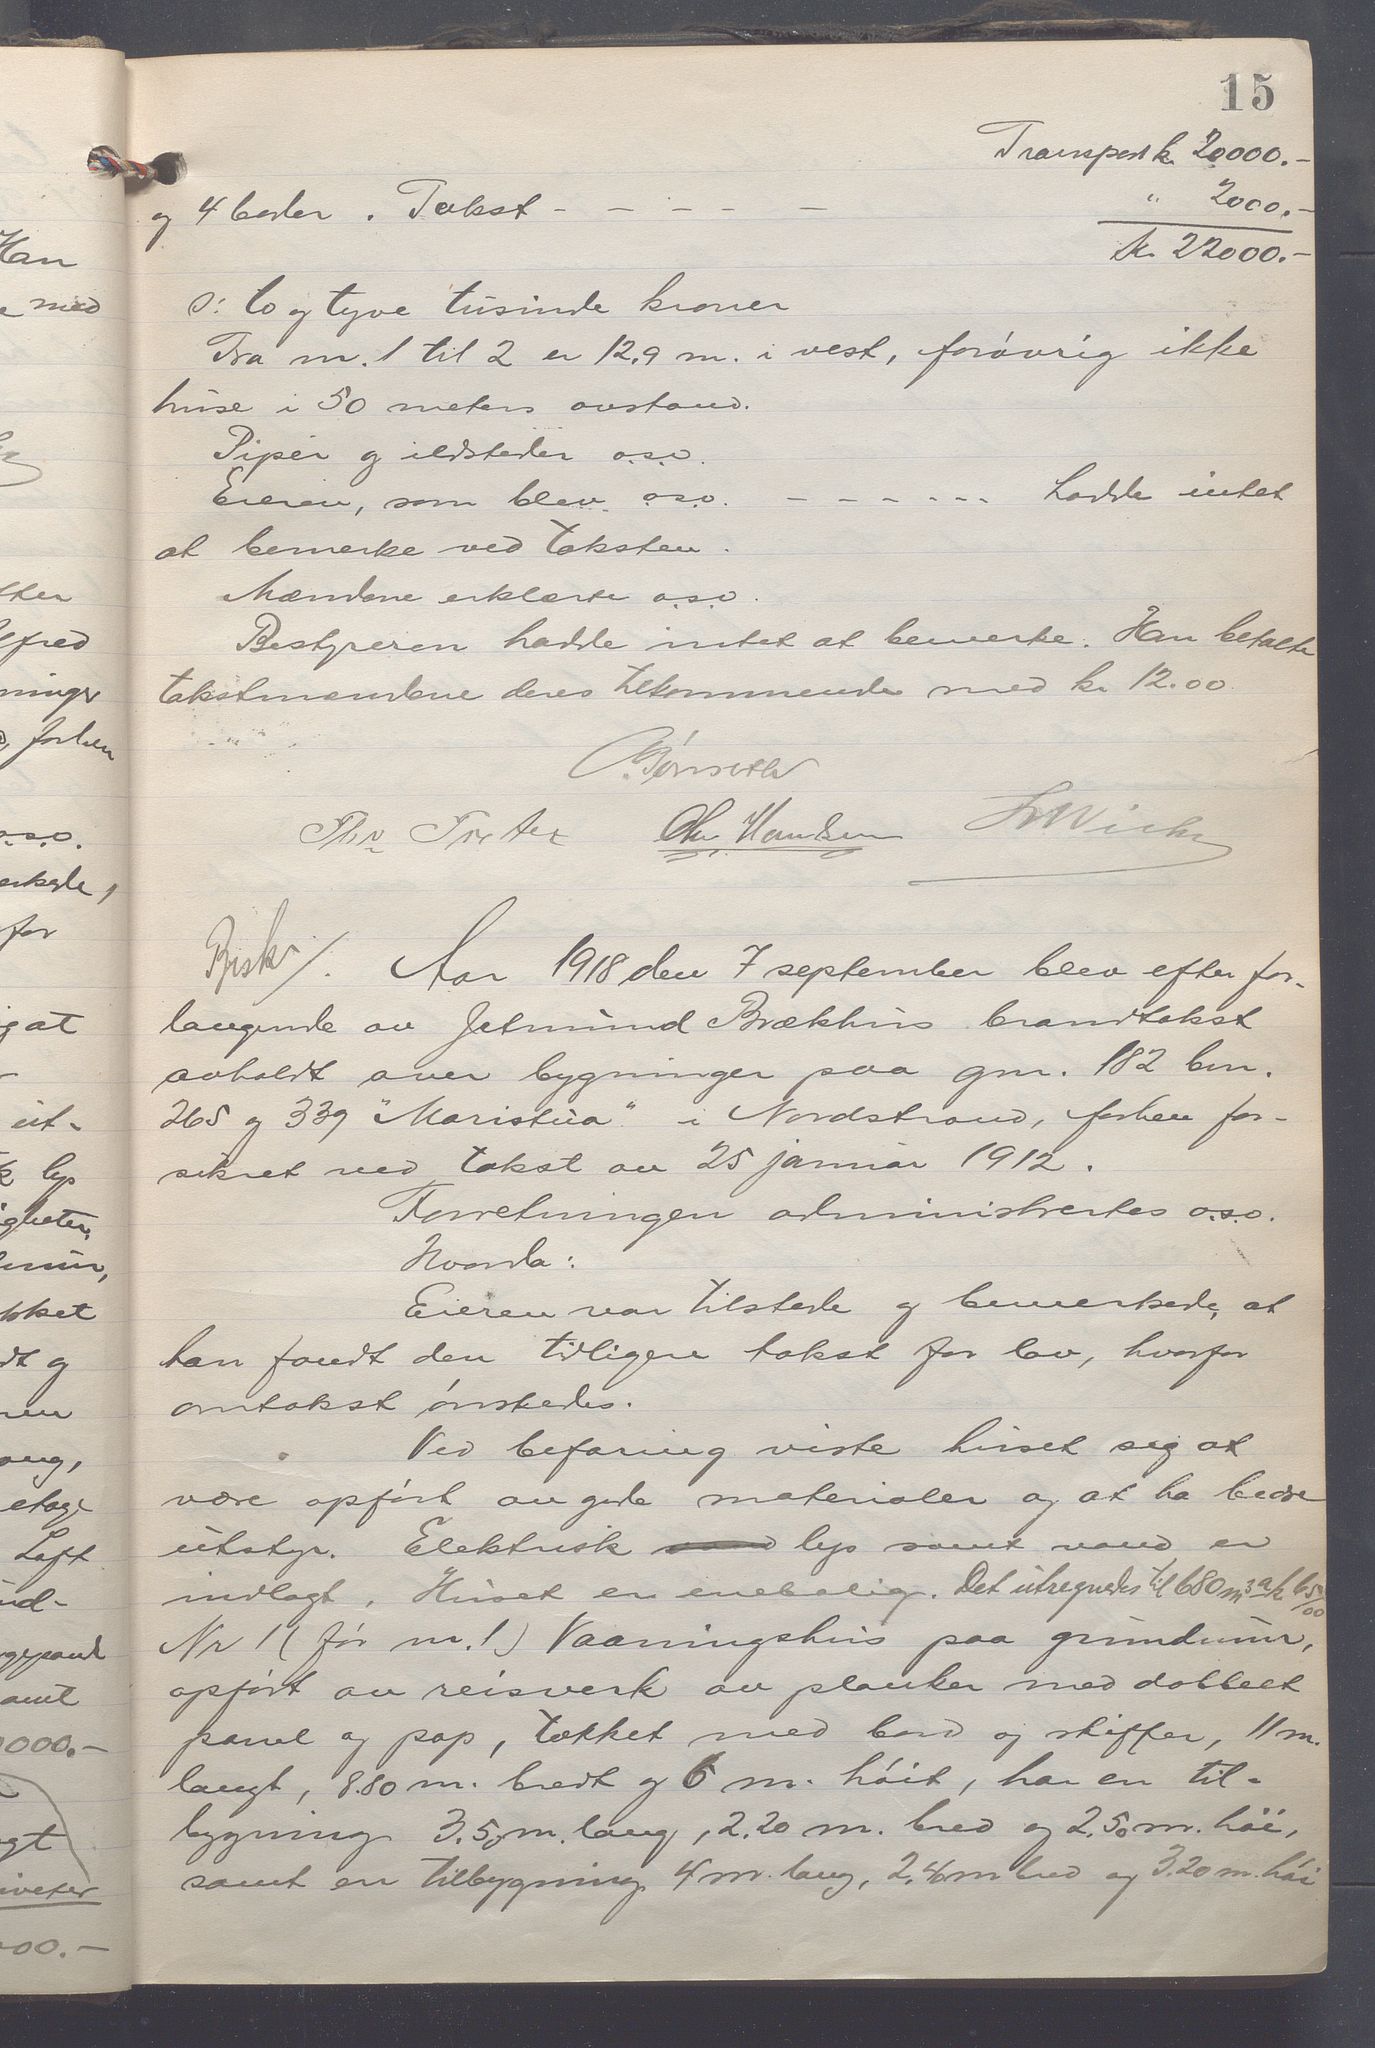 15
Transport kr 20000.-
og 4 boder. Takst - - - - - " 2000.-
kr. 22000.-
ɔ: to og tyve tusinde kroner
Fra nr. 1 til 2 er 12.9 m. i vest, forøvrig ikke
huse i 50 meters avstand.
Piper og ildsteder o.s.v.
Eieren, som blev o.s.v. - - - - - - - hadde intet
at bemerke ved taksten.
Mændene erklærte o.s.v.
Bestyreren hadde intet at bemerke. Han betalte
takstmændene deres tilkommende med kr 12.00
Chr Hansen
Aar 1918 den 7 september blev efter for-
langende av Jetmund Brækhus brandtakst
avholdt over bygninger paa gnr. 182 bnr.
265 og 339 "Maristua" i Nordstrand, forhen for-
sikret ved takst av 25 januar 1912.
Forretningen administrertes o.s.v.
Hvorda:
Eieren var tilstede og bemerkede, at
han fandt den tidligere takst for lav, hvorfor
omtakst ønskedes.
Ved befaring viste huset seg at
være opført av gode materialer og at ha bedre
utstyr. Elektrisk lys samt vand er
indlagt. Huset er enebolig. Det utregnedes til 680 m³ a kr 65/00
Nr 1 (før nr. 1) Vaaningshus paa grundmur,
opført av reisverk av planker med dobbelt
panel og pap, tækket med bord og skiffer, 11 m.
langt, 8.80 m. bredt og 6 m. høit, har en til-
bygning 3.50 m. lang, 2.20 m. bred og 2.50 m. høi,
samt en tilbygning 4 m. lang, 2.40 m bred og 3.20 m. høi
Han
med
fred
ninger
forhen
o.s.v.
for
at
ut-
lys
og
etage
Loft
000.-
00.-